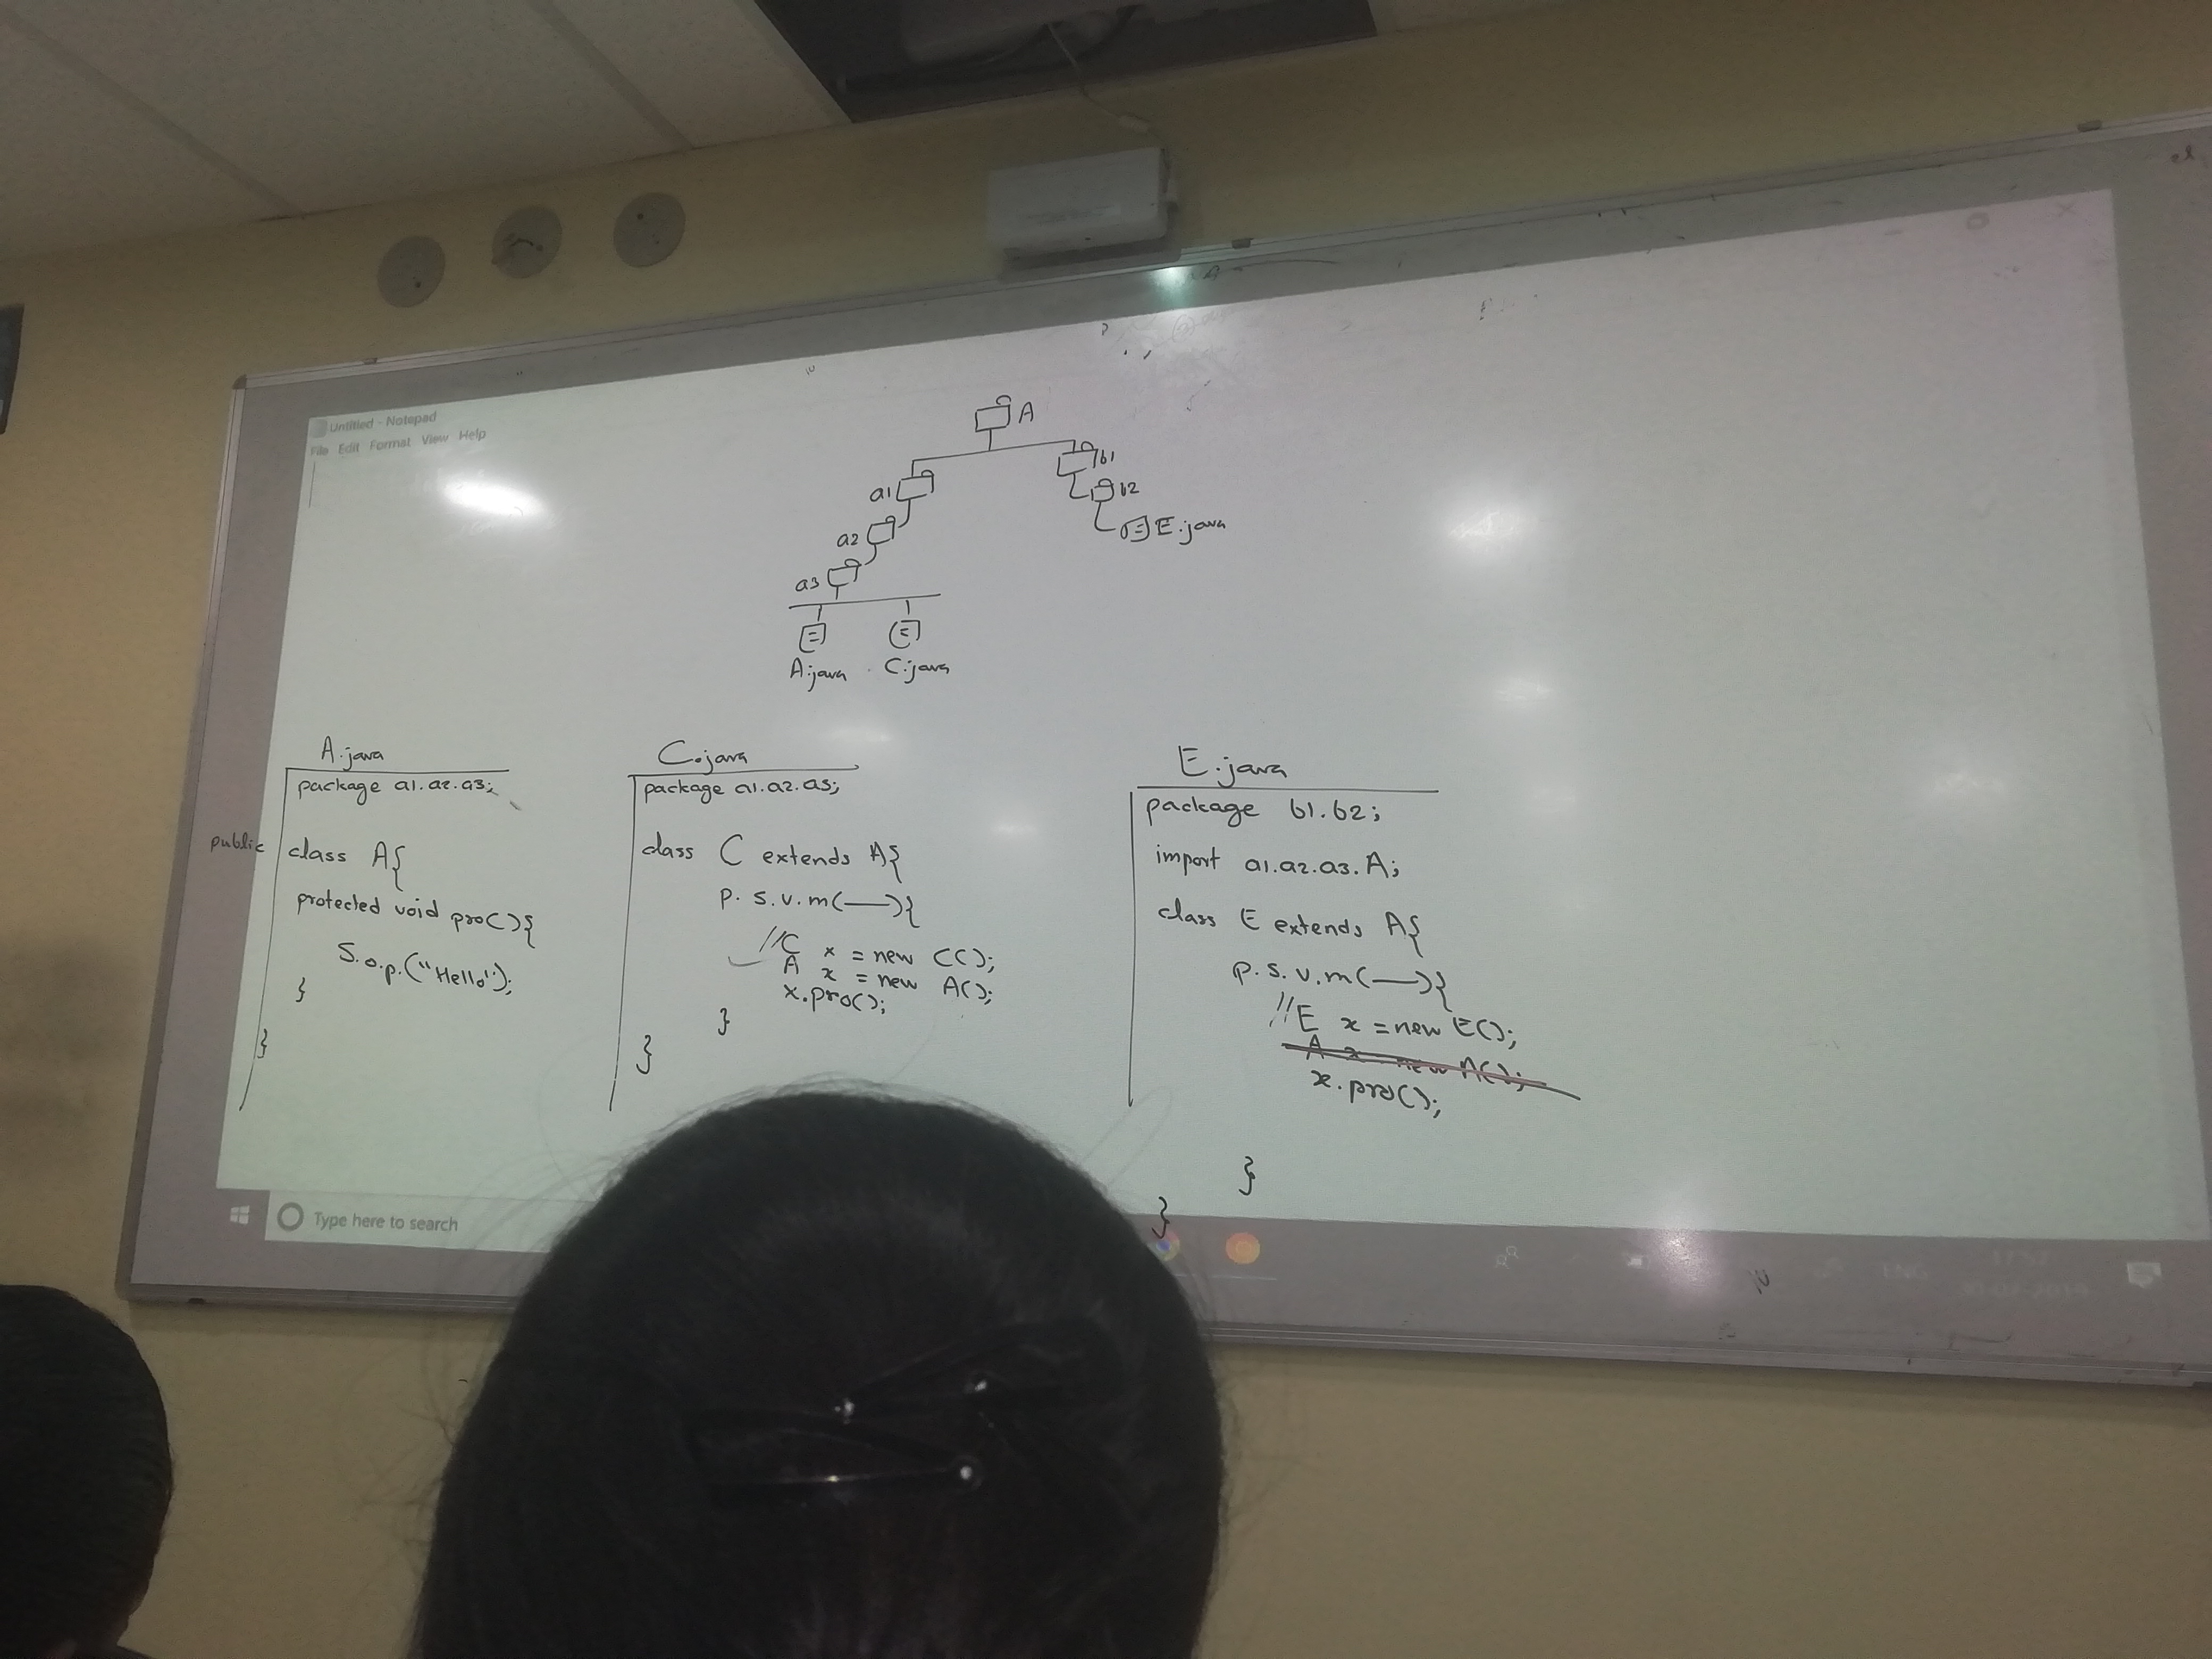 Untitled - Notepad
File Edit Format View Help
A
a1
b1
a2
b2
a3
E.java
A.java
C.java
A.java
package a1.a2.a3;
public class A{
protected void pro(){
S.o.p.("Hello");
}
}
C.java
package a1.a2.a3;
class C extends A{
p. s. v. m(—){
//C x = new C();
A x = new A();
x.pro();
}
}
E.java
package b1.b2;
import a1.a2.a3.A;
class E extends A{
p. s. v. m(—){
//E x = new E();
A x = new A();
x.pro();
}
}
Type here to search
ENG